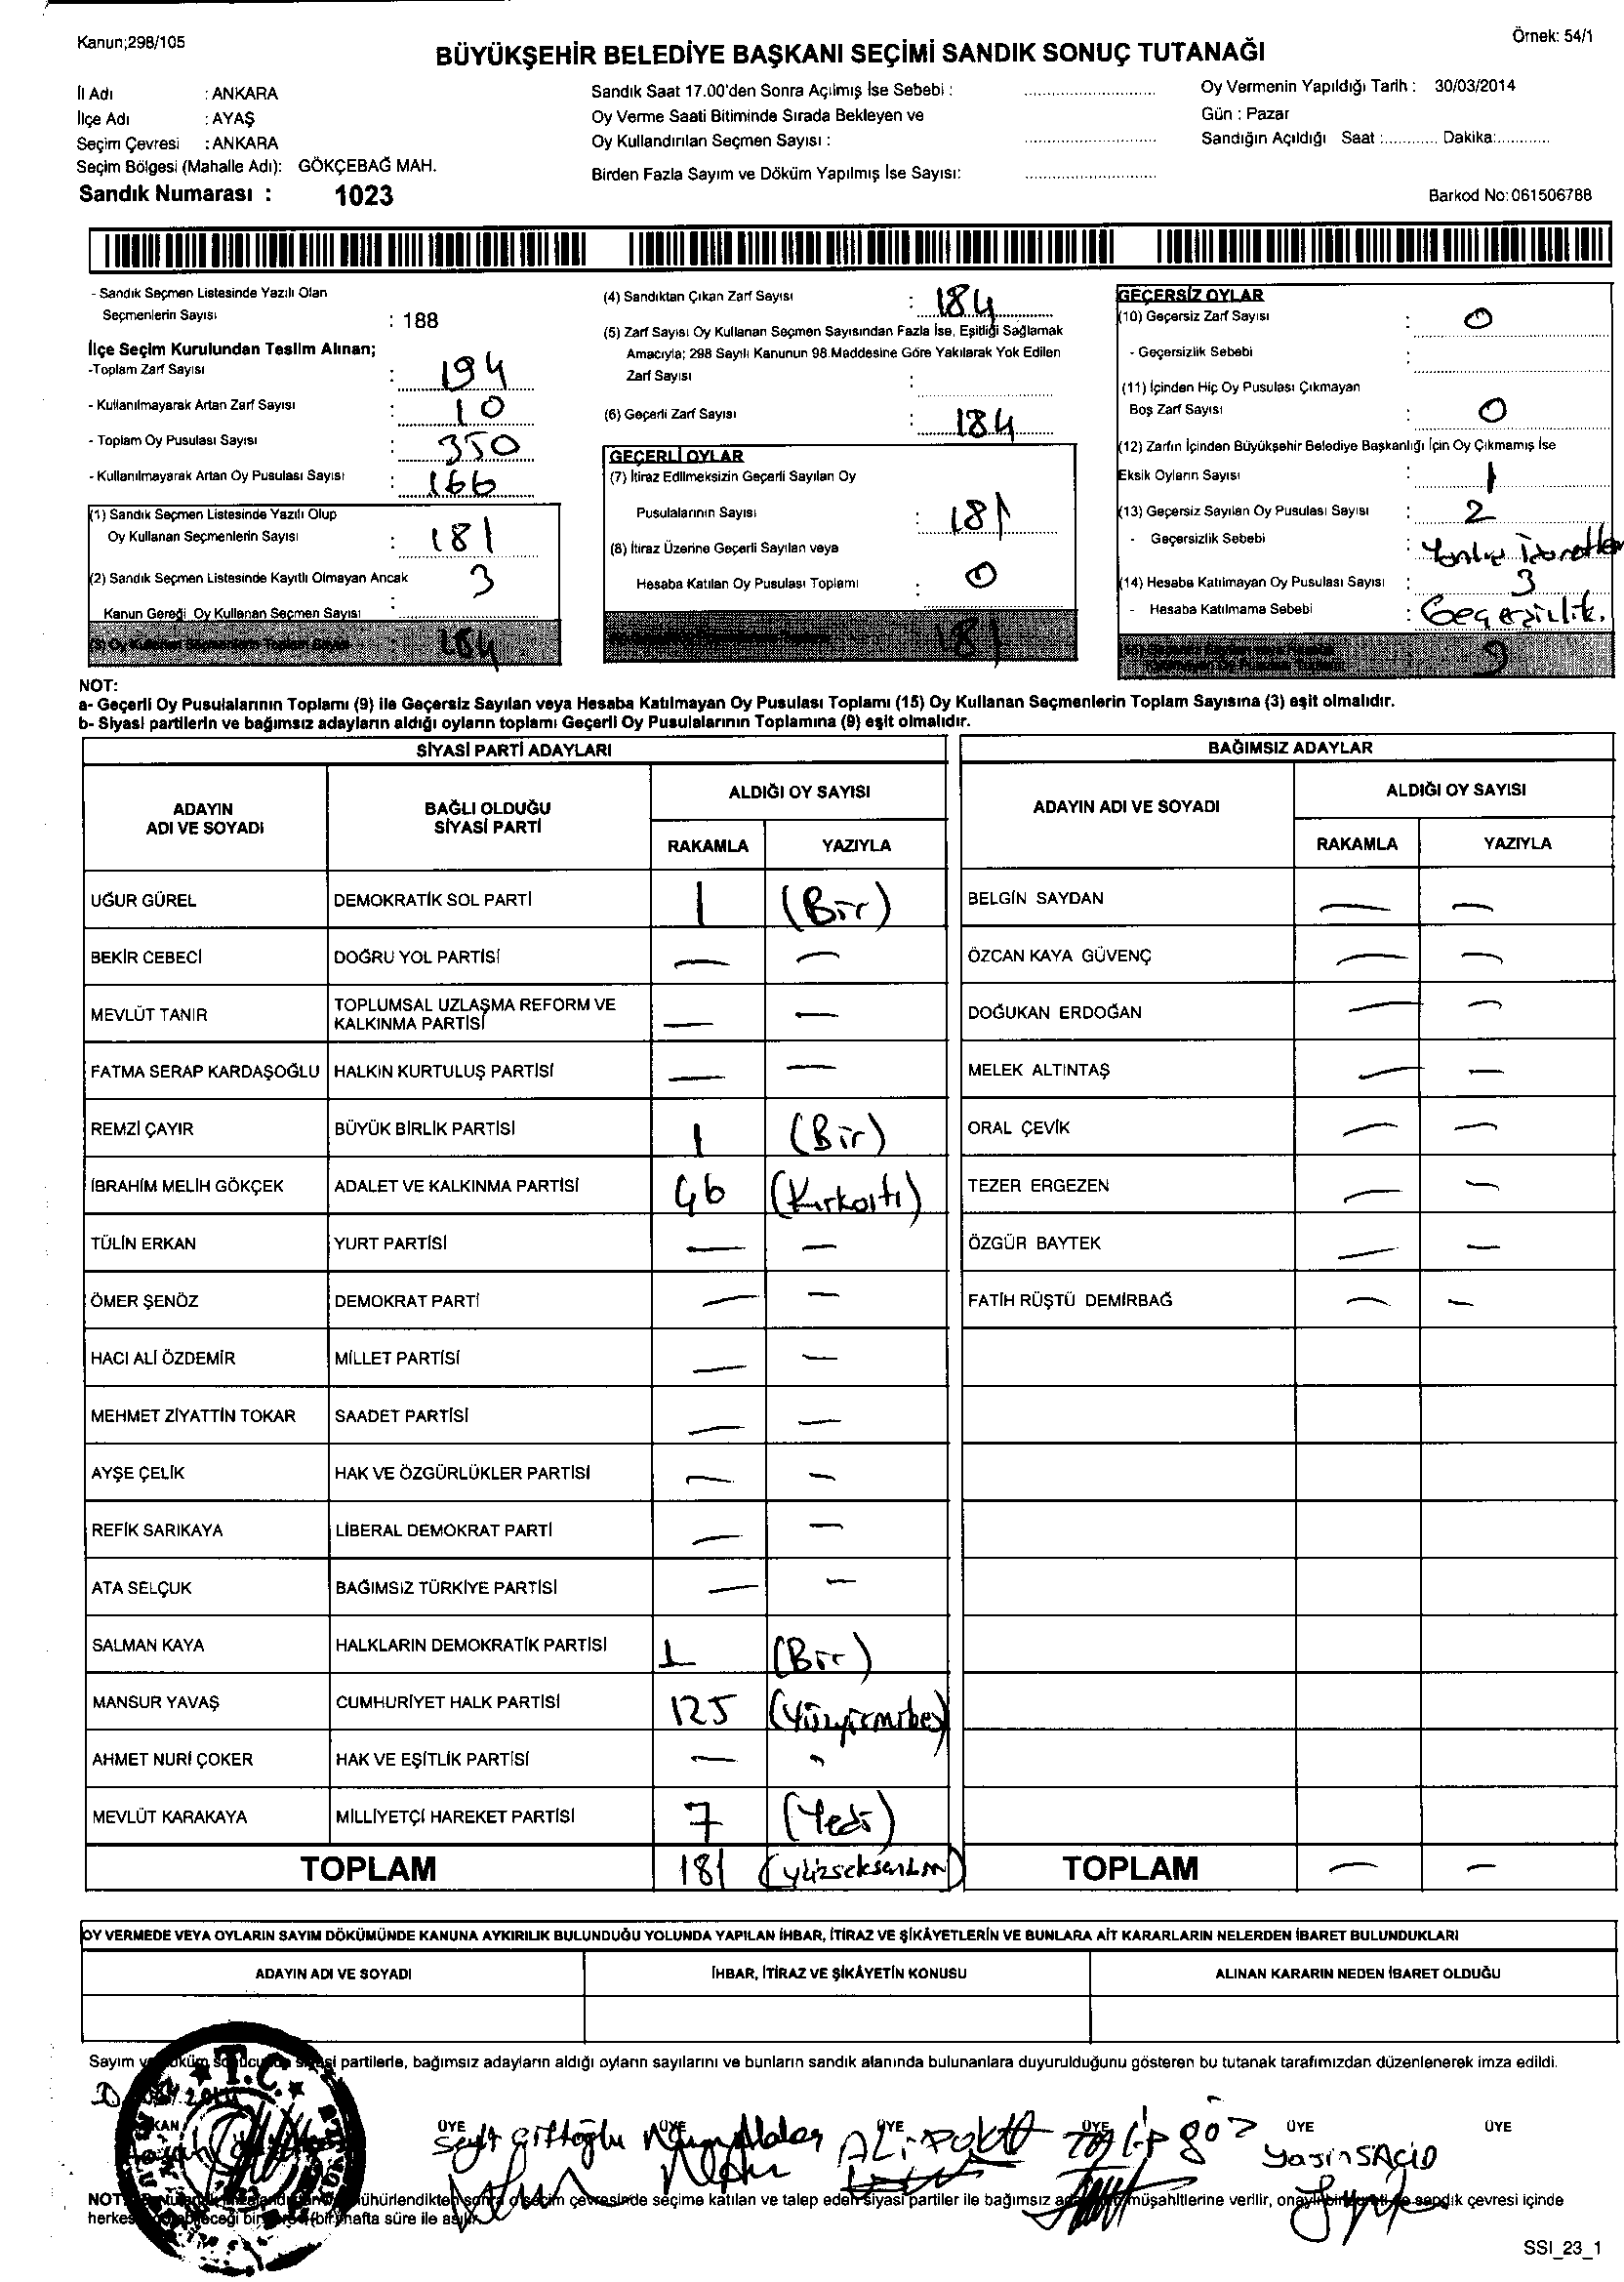 Kanun;298/105
Örnek: 54/1
BÜYÜKŞEHİR BELEDİYE BAŞKANI SEÇİMİ SANDIK SONUÇ TUTANAĞI
İl Adı : ANKARA
İlçe Adı : AYAŞ
Seçim Çevresi : ANKARA
Seçim Bölgesi (Mahalle Adı): GÖKÇEBAĞ MAH.
Sandık Numarası : 1023
Sandık Saat 17.00'den Sonra Açılmış İse Sebebi :
Oy Verme Saati Bitiminde Sırada Bekleyen ve
Oy Kullandırılan Seçmen Sayısı :
Birden Fazla Sayım ve Döküm Yapılmış İse Sayısı:
Oy Vermenin Yapıldığı Tarih : 30/03/2014
Gün : Pazar
Sandığın Açıldığı Saat :............ Dakika:............
Barkod No:061506788
- Sandık Seçmen Listesinde Yazılı Olan
Seçmenlerin Sayısı : 188
İlçe Seçim Kurulundan Teslim Alınan;
-Toplam Zarf Sayısı : 194
- Kullanılmayarak Artan Zarf Sayısı : 10
- Toplam Oy Pusulası Sayısı : 350
- Kullanılmayarak Artan Oy Pusulası Sayısı : 166
(1) Sandık Seçmen Listesinde Yazılı Olup
Oy Kullanan Seçmenlerin Sayısı : 181
(2) Sandık Seçmen Listesinde Kayıtlı Olmayan Ancak
Kanun Gereği Oy Kullanan Seçmen Sayısı : 3
(3) Oy Kullanan Seçmenlerin Toplam Sayısı : 184
(4) Sandıktan Çıkan Zarf Sayısı : 184
(5) Zarf Sayısı Oy Kullanan Seçmen Sayısından Fazla İse, Eşitliği Sağlamak
Amacıyla; 298 Sayılı Kanunun 98.Maddesine Göre Yakılarak Yok Edilen
Zarf Sayısı :
(6) Geçerli Zarf Sayısı : 184
GEÇERLİ OYLAR
(7) İtiraz Edilmeksizin Geçerli Sayılan Oy
Pusulalarının Sayısı : 181
(8) İtiraz Üzerine Geçerli Sayılan veya
Hesaba Katılan Oy Pusulası Toplamı : 0
181
GEÇERSİZ OYLAR
(10) Geçersiz Zarf Sayısı : 0
- Geçersizlik Sebebi :
(11) İçinden Hiç Oy Pusulası Çıkmayan
Boş Zarf Sayısı : 0
(12) Zarfın İçinden Büyükşehir Belediye Başkanlığı İçin Oy Çıkmamış İse
Eksik Oyların Sayısı : 1
(13) Geçersiz Sayılan Oy Pusulası Sayısı : 2
- Geçersizlik Sebebi :
(14) Hesaba Katılmayan Oy Pusulası Sayısı : 3
- Hesaba Katılmama Sebebi : Geçersizlik.
NOT:
a- Geçerli Oy Pusulalarının Toplamı (9) ile Geçersiz Sayılan veya Hesaba Katılmayan Oy Pusulası Toplamı (15) Oy Kullanan Seçmenlerin Toplam Sayısına (3) eşit olmalıdır.
b- Siyasi partilerin ve bağımsız adayların aldığı oyların toplamı Geçerli Oy Pusulalarının Toplamına (9) eşit olmalıdır.
SİYASİ PARTİ ADAYLARI
ADAYIN
ADI VE SOYADI
BAĞLI OLDUĞU
SİYASİ PARTİ
ALDIĞI OY SAYISI
RAKAMLA YAZIYLA
UĞUR GÜREL DEMOKRATİK SOL PARTİ 1 (Bir)
BEKİR CEBECİ DOĞRU YOL PARTİSİ — —
MEVLÜT TANIR TOPLUMSAL UZLAŞMA REFORM VE
KALKINMA PARTİSİ — —
FATMA SERAP KARDAŞOĞLU HALKIN KURTULUŞ PARTİSİ — —
REMZİ ÇAYIR BÜYÜK BİRLİK PARTİSİ 1 (Bir)
İBRAHİM MELİH GÖKÇEK ADALET VE KALKINMA PARTİSİ 46 (Kırkaltı)
TÜLİN ERKAN YURT PARTİSİ — —
ÖMER ŞENÖZ DEMOKRAT PARTİ — —
HACI ALİ ÖZDEMİR MİLLET PARTİSİ — —
MEHMET ZİYATTİN TOKAR SAADET PARTİSİ — —
AYŞE ÇELİK HAK VE ÖZGÜRLÜKLER PARTİSİ — —
REFİK SARIKAYA LİBERAL DEMOKRAT PARTİ — —
ATA SELÇUK BAĞIMSIZ TÜRKİYE PARTİSİ — —
SALMAN KAYA HALKLARIN DEMOKRATİK PARTİSİ 1 (Bir)
MANSUR YAVAŞ CUMHURİYET HALK PARTİSİ 125 (Yüzyirmibeş)
AHMET NURİ ÇOKER HAK VE EŞİTLİK PARTİSİ — —
MEVLÜT KARAKAYA MİLLİYETÇİ HAREKET PARTİSİ 7 (Yedi)
TOPLAM 181 (yüzseksenbir)
BAĞIMSIZ ADAYLAR
ADAYIN ADI VE SOYADI
ALDIĞI OY SAYISI
RAKAMLA YAZIYLA
BELGİN SAYDAN — —
ÖZCAN KAYA GÜVENÇ — —
DOĞUKAN ERDOĞAN — —
MELEK ALTINTAŞ — —
ORAL ÇEVİK — —
TEZER ERGEZEN — —
ÖZGÜR BAYTEK — —
FATİH RÜŞTÜ DEMİRBAĞ — —
TOPLAM — —
OY VERMEDE VEYA OYLARIN SAYIM DÖKÜMÜNDE KANUNA AYKIRILIK BULUNDUĞU YOLUNDA YAPILAN İHBAR, İTİRAZ VE ŞİKÂYETLERİN VE BUNLARA AİT KARARLARIN NELERDEN İBARET BULUNDUKLARI
ADAYIN ADI VE SOYADI İHBAR, İTİRAZ VE ŞİKÂYETİN KONUSU ALINAN KARARIN NEDEN İBARET OLDUĞU
Sayım ve partilerle, bağımsız adayların aldığı oyların sayılarını ve bunların sandık alanında bulunanlara duyurulduğunu gösteren bu tutanak tarafımızdan düzenlenerek imza edildi.
T.C.
ÜYE ÜYE ÜYE ÜYE ÜYE ÜYE
Yasin SAÇID
NOT: mühürlendikten sonra o seçim çevresinde seçime katılan ve talep eden siyasi partiler ile bağımsız müşahitlerine verilir, sandık çevresi içinde
hafta süre ile asılır.
SSI_23_1